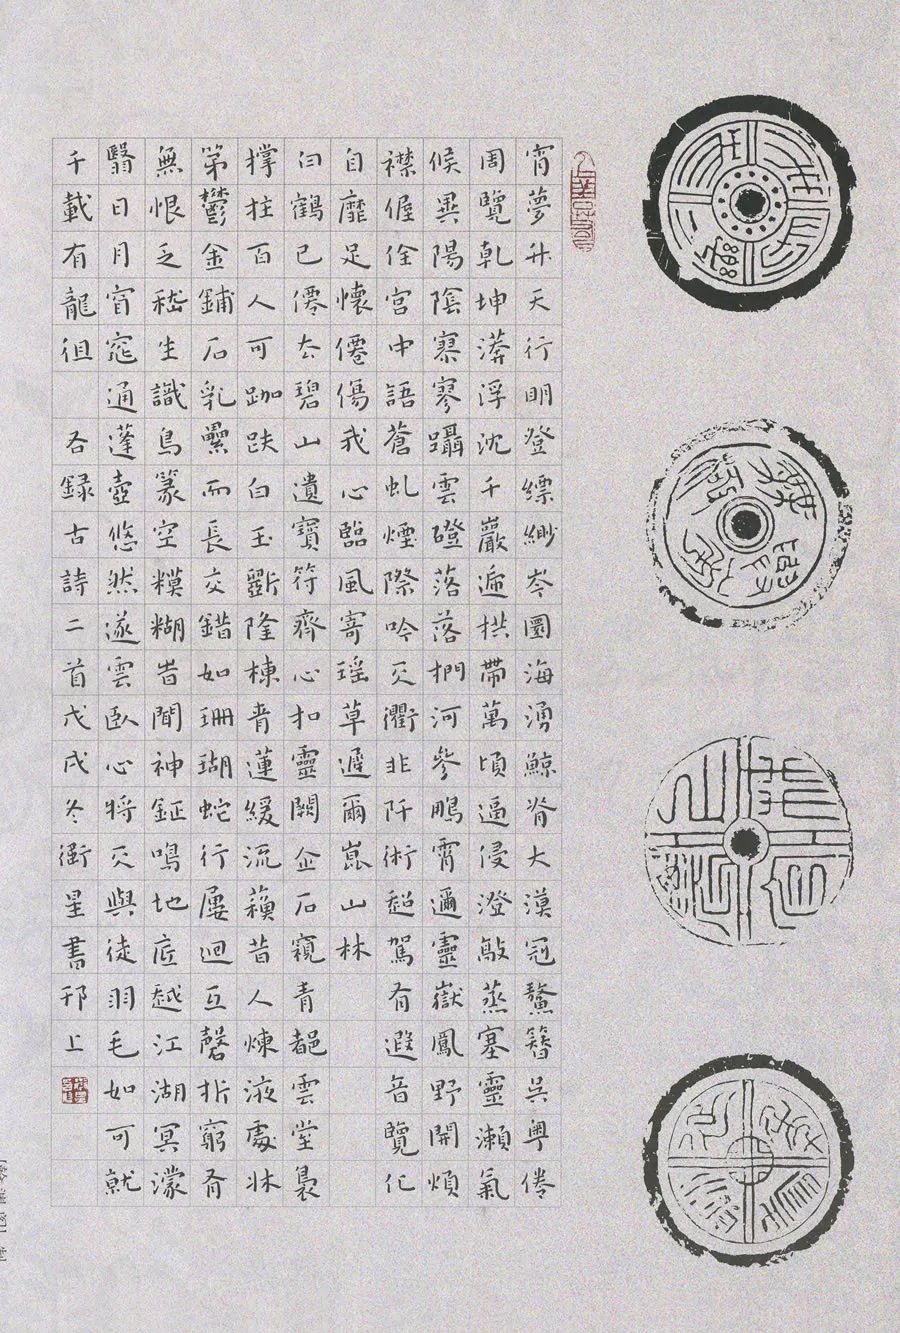 宵夢升天行明登縹緲岑圜海湧鯨脊大漠冠鰲簪吳粵倦
周覽乾坤漭浮沈千巖遞拱帶萬頃逼侵澄敲蒸塞靈瀨氣
候異陽陰寨寥躡雲磴落落捫河參鵬霄邇靈嶽鳳野開煩
襟偓佺宮中語蒼虬煙際吟冥衢非阡術超駕有遐音覽化
自靡足懷僊傷我心臨風寄瑤草遲爾崑山林
曰鶴已僊去碧山遺寶符齊心扣靈關企石窺青雲堂裊
撐拄百人可跏趺白玉斲隆棟青蓮緩流蘋昔人煉液處牀
第鬱金鋪石乳纍而長交錯如珊瑚蛇行屢迴互磬折窮有
無恨乏嵇生識鳥篆空糢糊昔聞神鉦鳴地底越江湖冥濛
翳日月窅窕通蓬壺悠然遂雲臥心將冥與徒羽毛如可就
千載有龍徂 右錄古詩二首戊戌冬衛星書邗上